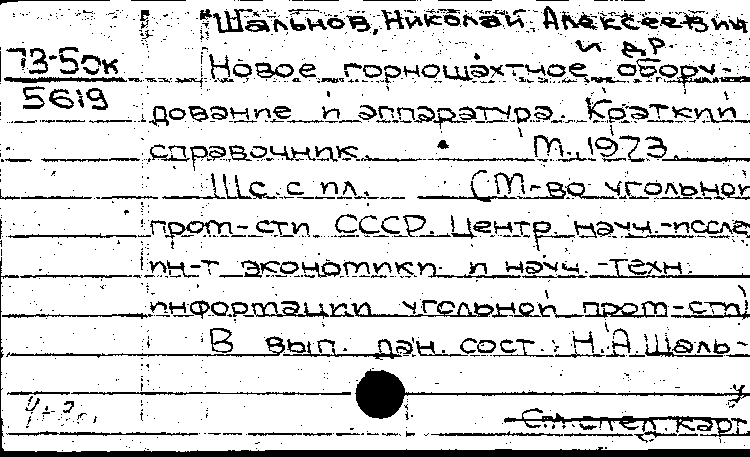 Шальнов, Николай Алексеевич
и др.
73-50к
5619
Новое горношахтное обору-
дование и аппаратура. Краткий
справочник. М., 1973.
111с. с ил. (М-во угольной
пром-сти СССР. Центр. науч.-иссле
ин-т экономики и науч.-техн.
информации угольной пром-сти)
В вып. дан. сост.: Н.А.Шаль-
См. след. карт.